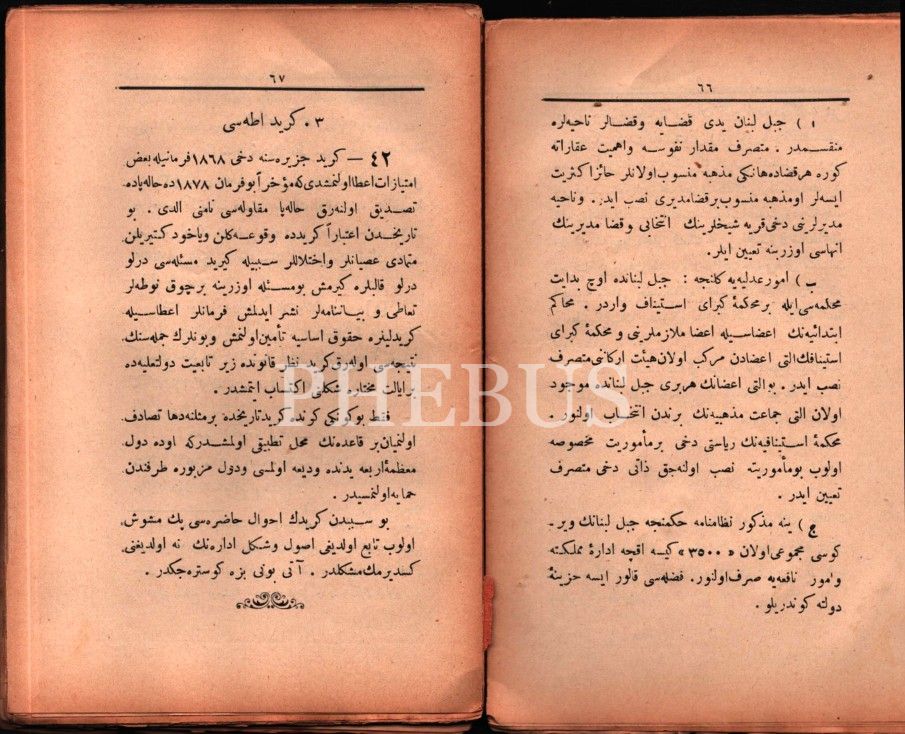 ٦٦
ا ) جبل لبنان یدی قضایه وقضالر ناحیه‌لره
منقسمدر . متصرف مقدار نفوسه واهمیت عقاراته
کوره هر قضاده هانکی مذهبه منسوب اولانلر حائز اکثریت
ایسه‌لر او مذهبه منسوب بر قضا مدیری نصب ایدر . وناحیه
مدیرلرینی دخی قریه شیخلرینك انتخابی وقضا مدیرینك
انهاسی اوزرینه تعیین ایلر .
ب ) امور عدلیه‌یه کلنجه : جبل لبنانده اوچ بدایت
محکمه‌سی ایله بر محکمهٔ کبرای استیناف واردر . محاکم
ابتدائیه‌نك اعضاسیله اعضا ملازملرینی و محکمهٔ کبرای
استینافك التی اعضادن مرکب اولان هیئت ارکانی متصرف
نصب ایدر . بو التی اعضانك هر بری جبل لبنانده موجود
اولان التی جماعت مذهبیه‌نك برندن انتخاب اولنور .
محکمهٔ استینافیه‌نك ریاستی دخی بر مأموریت مخصوصه
اولوب بو مأموریته نصب اولنه‌جق ذاتی دخی متصرف
تعیین ایدر .
ج ) ینه مذکور نظامنامه حکمنجه جبل لبنانك ویر-
کوسی مجموعی اولان «٣٥٠٠» کیسه اقچه ادارهٔ مملکته
و امور نافعه‌یه صرف اولنور. فضله‌سی قالور ایسه خزینهٔ
دولته کوندریلور .
٦٧
٣٠ کرید اطه‌سی
٤٢ — کرید جزیره‌سنه دخی ١٨٦٨ فرمانیله بعض
امتیازات اعطا اولنمشدی که مؤخراً بو فرمان ١٨٧٨ ده حاله‌پاده
تصدیق اولنه‌رق حاله‌پا مقاوله‌سی نامنی الدی . بو
تاریخدن اعتباراً کریدده وقوعه کلن ویاخود کتیریلن
متمادی عصیانلر واختلاللر سببیله کرید مسئله‌سی درلو
درلو قالبلره کیرمش بو مسئله اوزرینه برچوق نوطه‌لر
تعاطی و بیاننامه‌لر نشر ایدلمش فرمانلر اعطاسیله
کریدلیلره حقوق اساسیه تأمین اولنمش وبونلرك جمله‌سنك
نتیجه‌سی اوله‌رق کرید نظر قانونده زیر تابعیت دولتعلیه‌ده
بر ایالت مختاره شکلنی اکتساب ایتمشدر .
فقط بوکونکی کونده کرید تاریخده بر مثلنه دها تصادف
اولنمیان بر قاعده‌نك محل تطبیقی اولمشدر که اوده دول
معظمهٔ اربعه یدنده ودیعه اولمسی ودول مزبوره طرفندن
حمایه اولنمسیدر .
بو سببدن کریدك احوال حاضره‌سی پك مشوش
اولوب تابع اولدیغی اصول وشکل اداره‌نك نه اولدیغنی
کسدیرمك مشکلدر . آتی بونی بزه کوستره‌جکدر .
PHEBUS